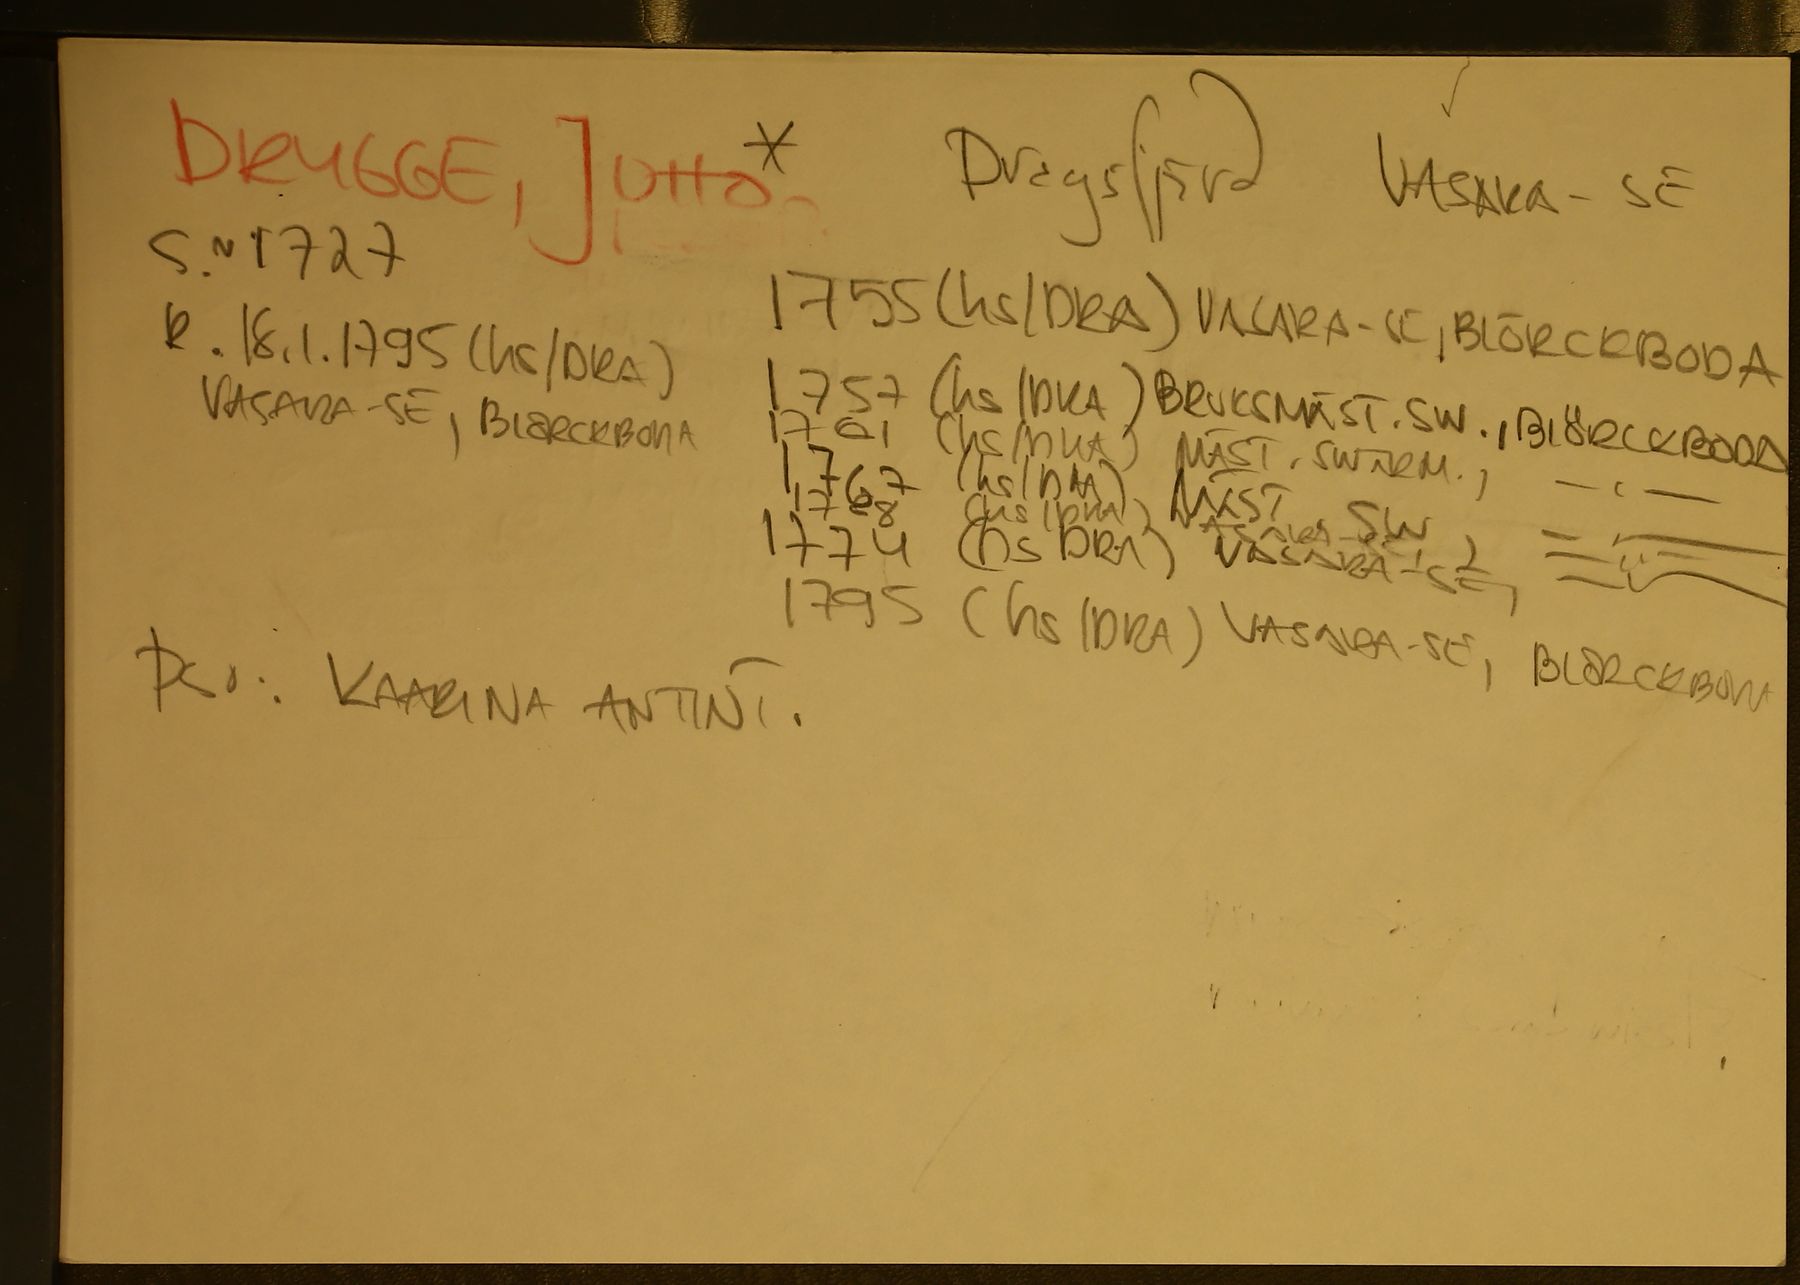 DRUGGE, Jutto. * Dragsfjärd VASARA-SE
S. ~ 1727
K. 18.1.1795 (hs/DRA)
VASARA-SE, BLÖRCKBODA
1755 (hs/DRA) VASARA-SE, BLÖRCKBODA
1757 (hs/DRA) BRUKSMÄST. SW., BLÖRCKBODA
1761 (hs/DRA) MÄST. SWARM., — " —
1767 (hs/DRA) MÄST. SW, — " —
1768 (hs/DRA) VASARA-SE, — " —
1774 (hs DRA) VASARA-SE, — " —
1795 (hs/DRA) VASARA-SE, BLÖRCKBODA
Pso.: KAARINA ANTINT.